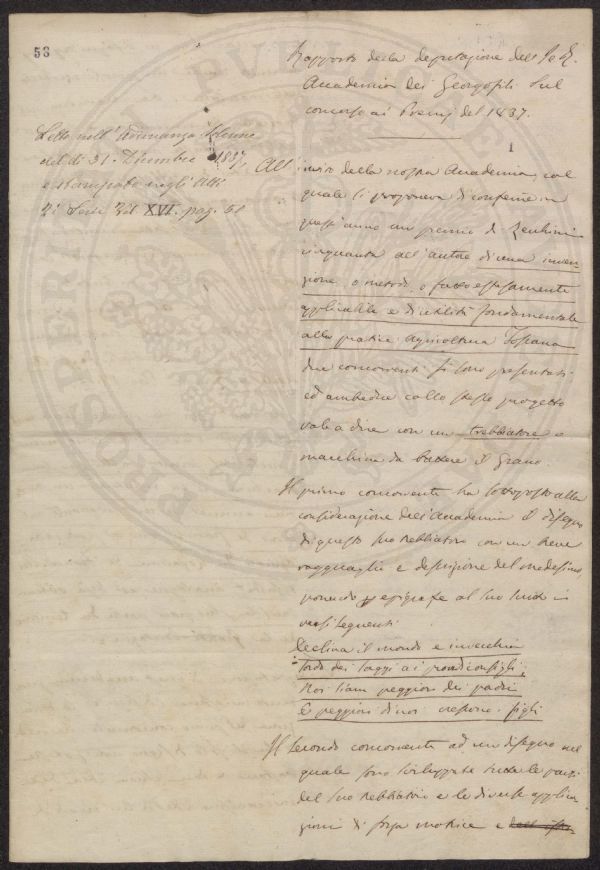 58
Rapporto della deputazione dell'I e R.
Accademia dei Georgofili sul
concorso ai Premj del 1837.
Letto nell'Adunanza Solenne
del dì 31. Dicembre 1837,
e stampato negli Atti
di Serie Vol XVI. pag. 51
1
All'invito della nostra Accademia, col
quale si proponeva di conferire in
quest'anno un premio di Zecchini
cinquanta all'autore di una inven-
zione, o metodo, o fatto estesamente
applicabile e di utilità fondamentale
alla pratica Agricoltura Toscana
due concorrenti si sono presentati
ed ambedue collo stesso progetto
vale a dire con un trebbiatore o
macchina da battere il Grano.
Il primo concorrente ha sottoposto alla
considerazione dell'Accademia il disegno
di questo suo trebbiatore con un breve
ragguaglio e descrizione del medesimo
ponendo epigrafe al suo in
versi seguenti
Declina il mondo e invecchia
sordo dei saggi ai prondi consigli;
Noi siam peggiori dei padri
E peggiori di noi crescono i figli
Il secondo concorrente ad un disegno nel
quale sono sviluppate tutte le parti
del suo trebbiatoio e le diverse applica-
zioni di forza motrice e